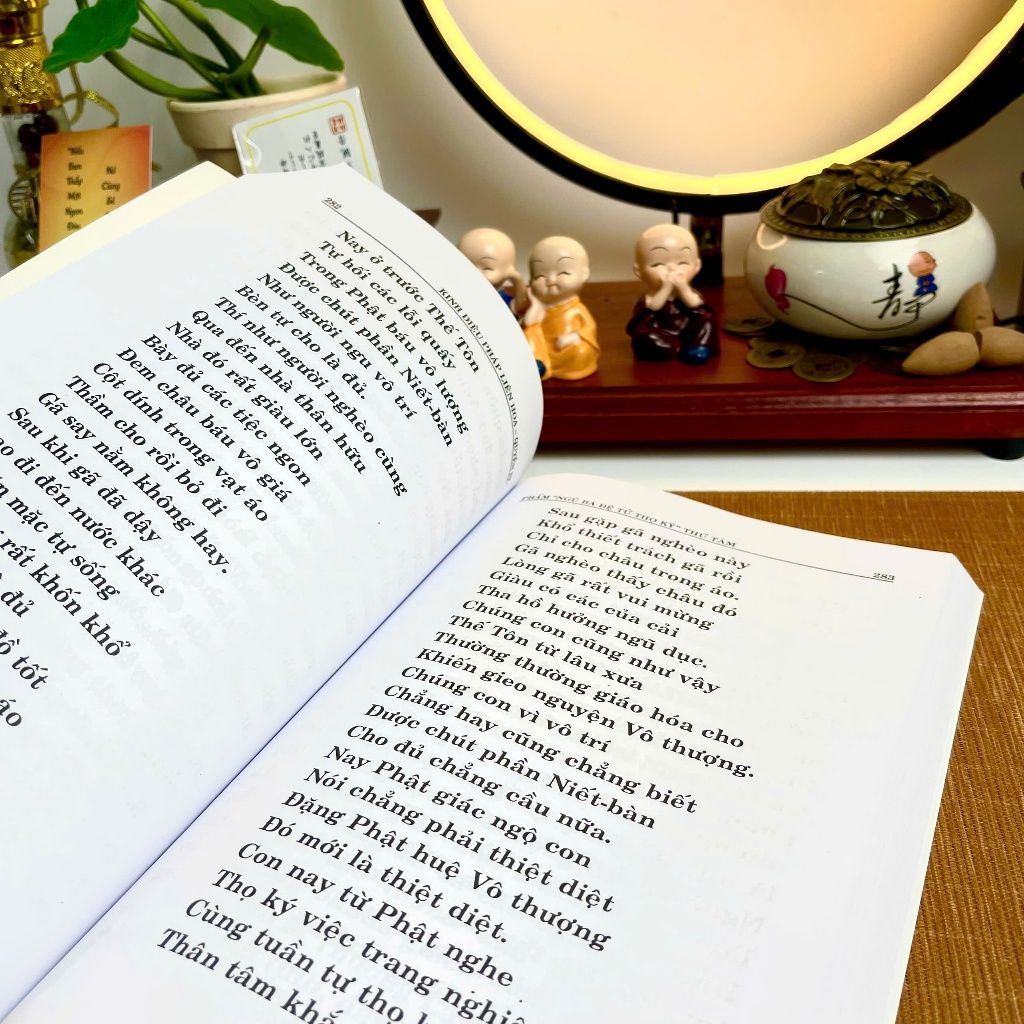 "Nếu
Bạn
Thấy
Một
Ngọn
Đèn
Nó
Cũng
Sẽ
静
282
KINH DIỆU PHÁP LIÊN HOA - QUYỂN
Nay ở trước Thế Tôn
Tự hối các lỗi quấy
Trong Phật báu vô lượng
Được chút phần Niết-bàn
Như người ngu vô trí
Bèn tự cho là đủ.
Thí như người nghèo cùng
Qua đến nhà thân hữu
Nhà đó rất giàu lớn
Bày đủ các tiệc ngon
Đem châu báu vô giá
Cột dính trong vạt áo
Thầm cho rồi bỏ đi
Gã say nằm không hay.
Sau khi gã đã dậy
đi đến nước khác
mặc tự sống
rất khốn khổ
đủ
đồ tốt
áo
PHẨM "NGŨ BÁ ĐỆ TỬ THỌ KÝ" THỨ TÁM
283
Sau gặp gã nghèo này
Khổ thiết trách gã rồi
Chỉ cho châu trong áo.
Gã nghèo thấy châu đó
Lòng gã rất vui mừng
Giàu có các của cải
Tha hồ hưởng ngũ dục.
Chúng con cũng như vậy
Thế Tôn từ lâu xưa
Thường thường giáo hóa cho
Khiến gieo nguyện Vô thượng.
Chúng con vì vô trí
Chẳng hay cũng chẳng biết
Được chút phần Niết-bàn
Cho đủ chẳng cầu nữa.
Nay Phật giác ngộ con
Nói chẳng phải thiệt diệt
Đặng Phật huệ Vô thượng
Đó mới là thiệt diệt.
Con nay từ Phật nghe
Thọ ký việc trang nghiêm
Cùng tuần tự thọ
Thân tâm